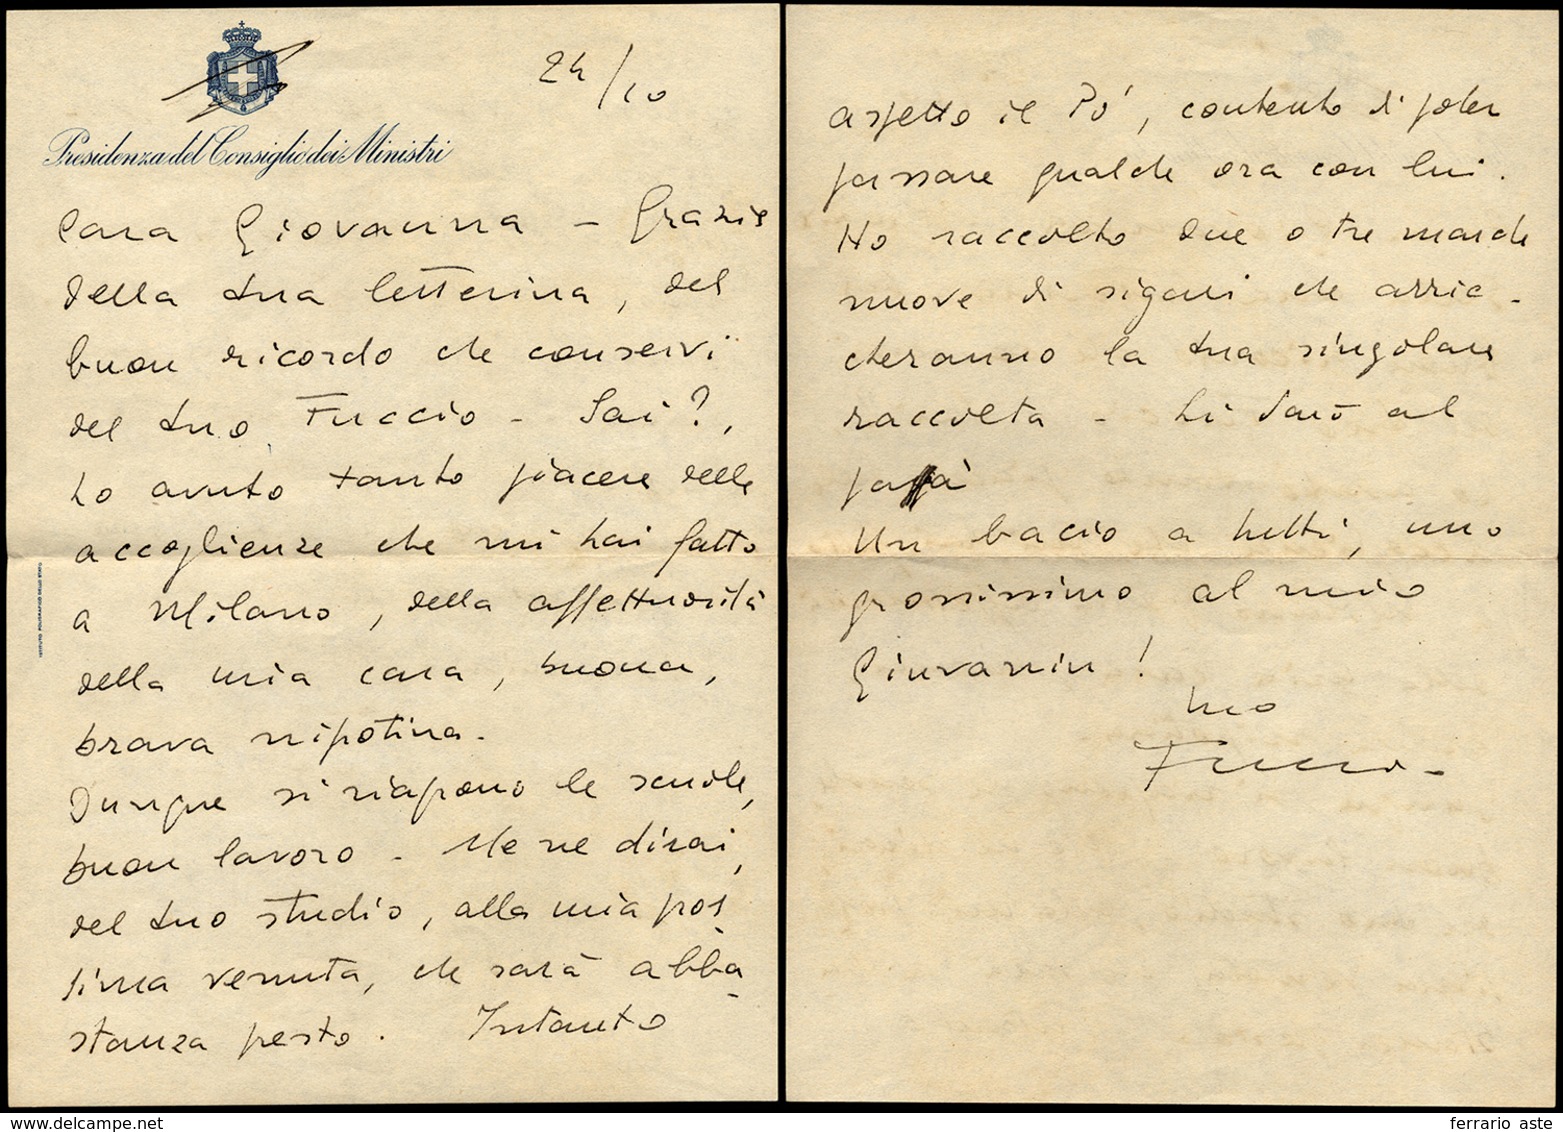 24/10
Presidenza del Consiglio dei Ministri
Cara Giovanna - Grazie
della tua letterina, del
buon ricordo che conservi
del tuo Fuccio - Sai?,
ho avuto tanto piacere delle
accoglienze che mi hai fatto
a Milano, della affettuosità
della mia cara, buona,
brava nipotina.
Dunque si riapono le scuole,
buon lavoro - Me ne dirai,
del tuo studio, alla mia pos
sima venuta, che sarà abba
stanza presto. Intanto
ISTITUTO POLIGRAFICO DELLO STATO
aspetto il Pò, contento di poter
passare qualche ora con lui.
Ho raccolto due o tre marche
nuove di sigari che arric-
cheranno la tua singolare
raccolta - Li darò al
papà
Un bacio a tutti, uno
grossissimo al mio
Giuvanin!
tuo
Fuccio-
ferrario aste